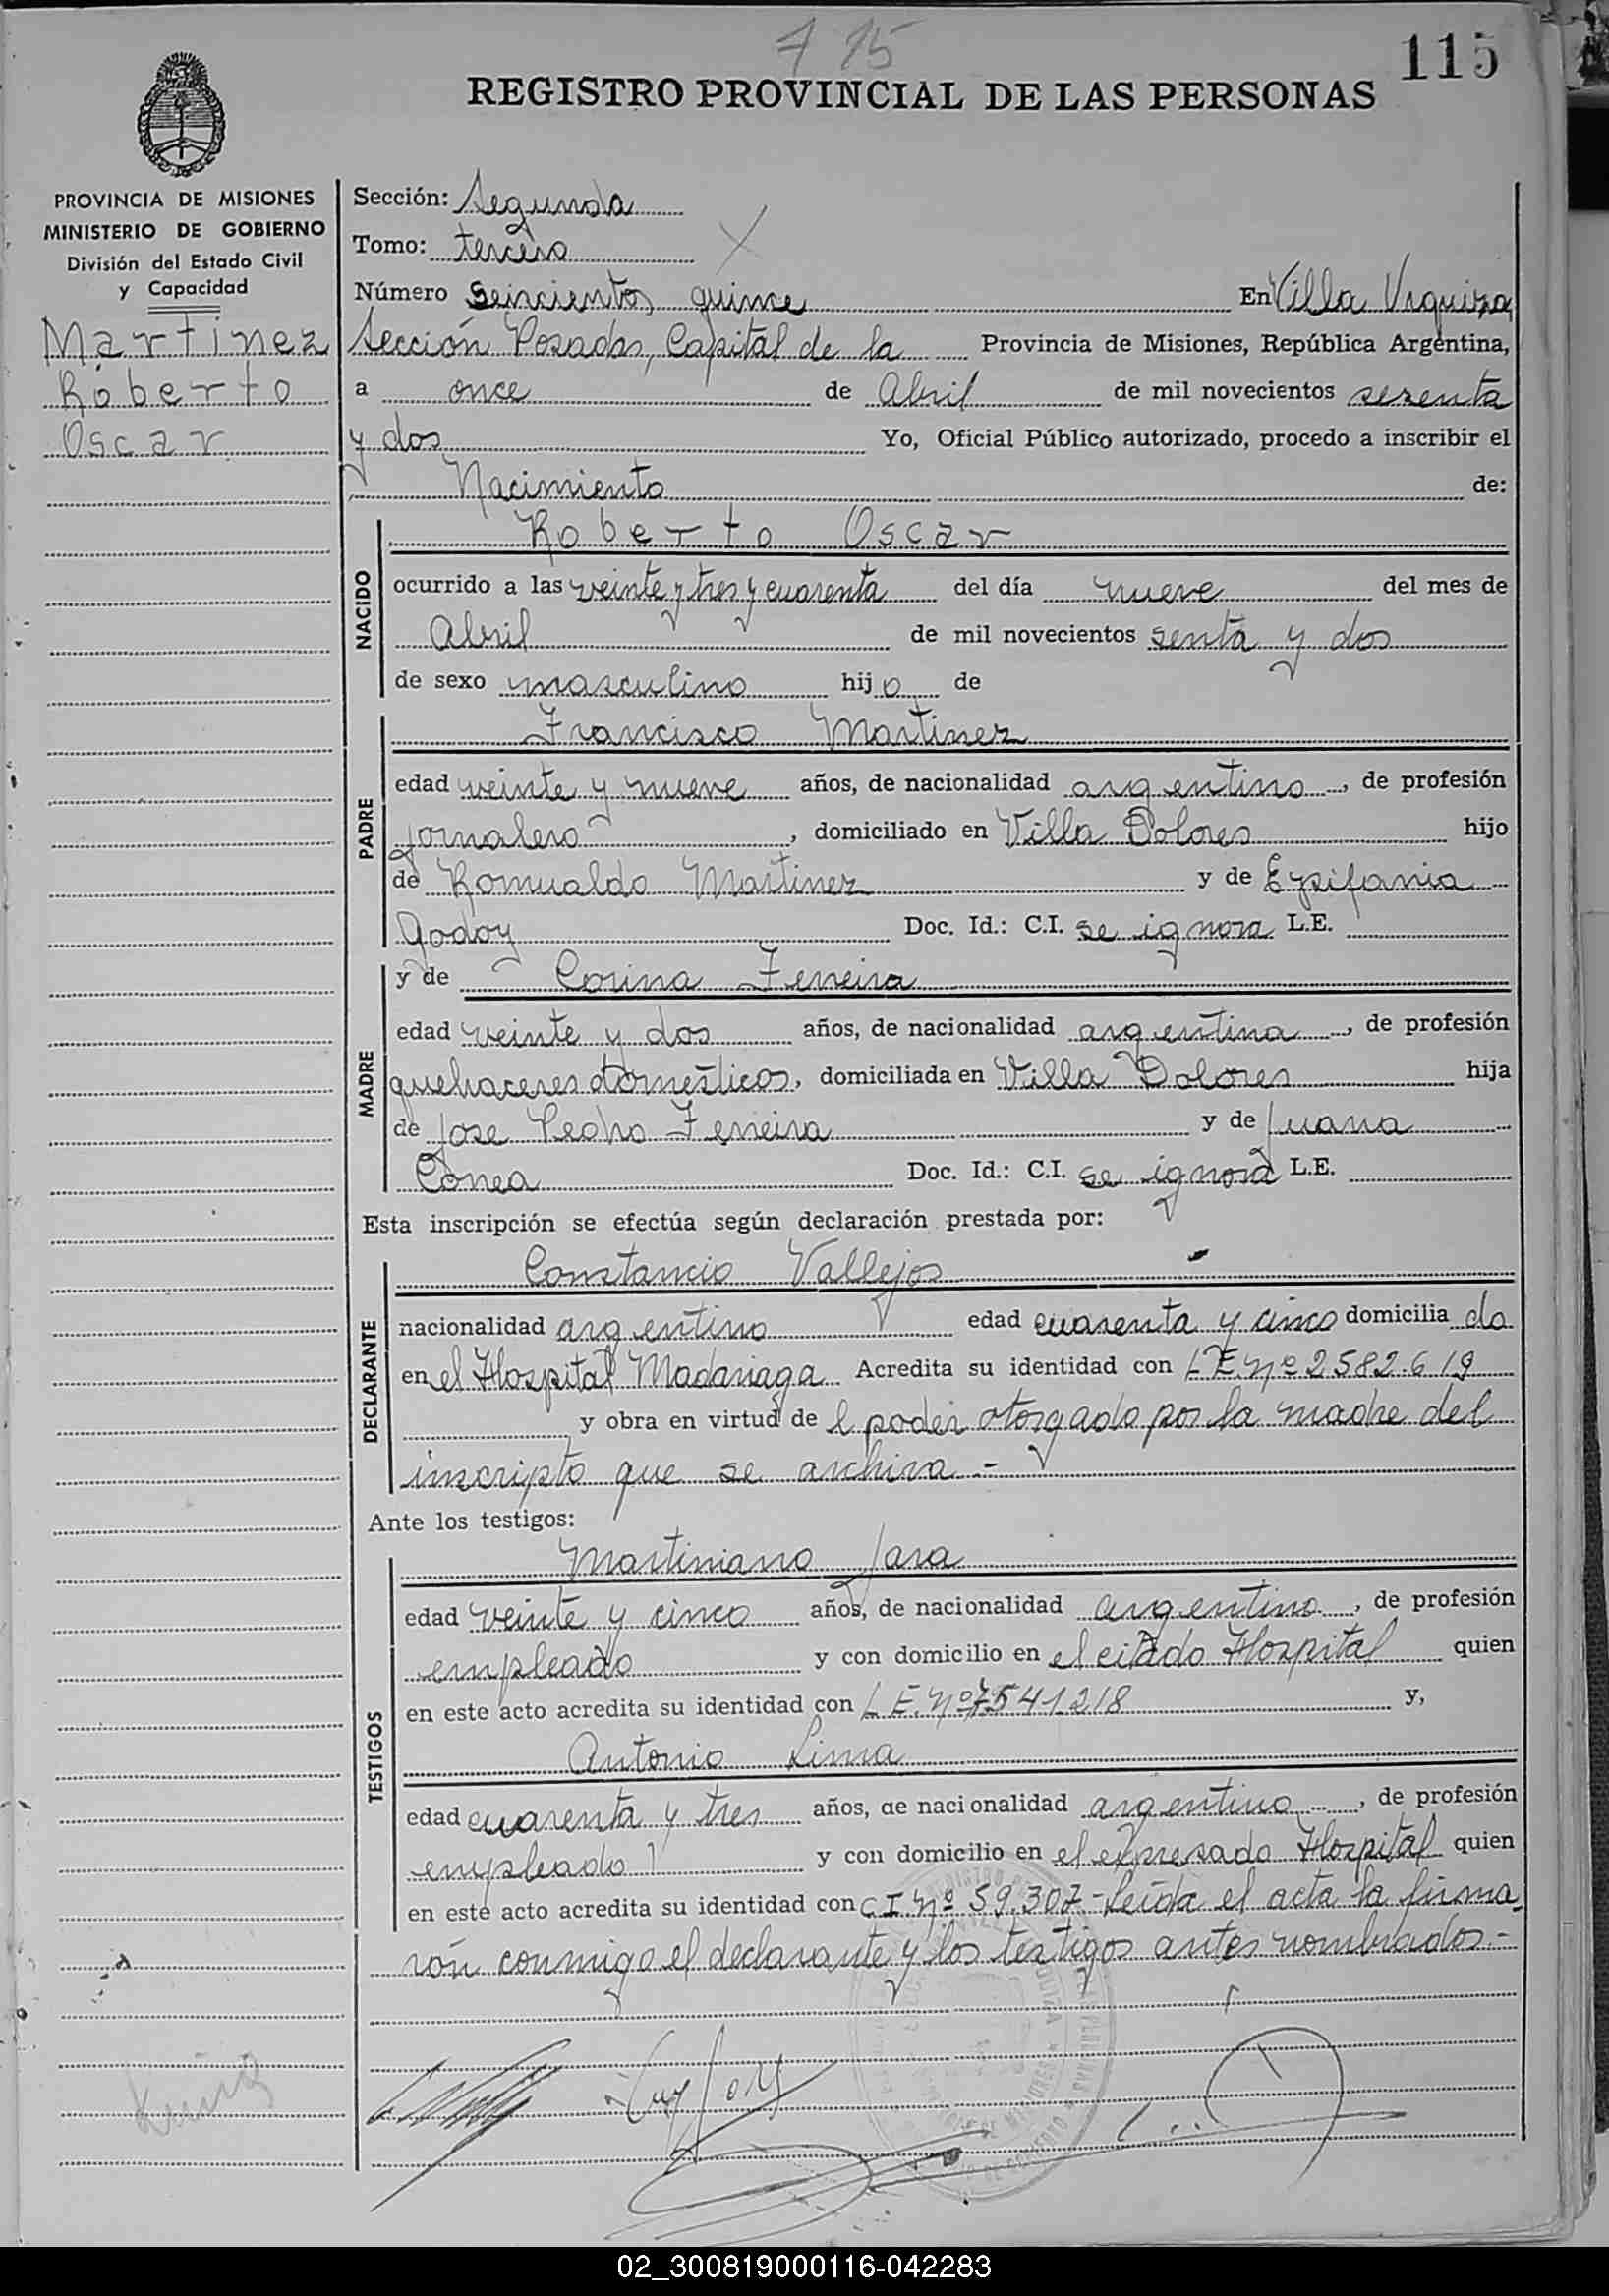 115
REGISTRO PROVINCIAL DE LAS PERSONAS
PROVINCIA DE MISIONES
MINISTERIO DE GOBIERNO
División del Estado Civil
y Capacidad
Martinez
Roberto
Oscar
Sección: Segunda
Tomo: tercero
Número Seiscientos quince En Villa Urquiza
Sección Posadas, Capital de la Provincia de Misiones, República Argentina,
a once de Abril de mil novecientos sesenta
y dos Yo, Oficial Público autorizado, procedo a inscribir el
Nacimiento de:
NACIDO
Roberto Oscar
ocurrido a las veinte y tres y cuarenta del día nueve del mes de
Abril de mil novecientos senta y dos
de sexo masculino hijo de
PADRE
Francisco Martinez
edad veinte y nueve años, de nacionalidad argentino, de profesión
jornalero, domiciliado en Villa Dolores hijo
de Romualdo Martinez y de Epifania
Godoy Doc. Id.: C.I. se ignora L.E.
MADRE
y de Corina Ferreira
edad veinte y dos años, de nacionalidad argentina, de profesión
quehaceres domesticos, domiciliada en Villa Dolores hija
de Jose Pedro Ferreira y de Juana
Correa Doc. Id.: C.I. se ignora L.E.
Esta inscripción se efectúa según declaración prestada por:
DECLARANTE
Constancio Vallejos
nacionalidad argentino edad cuarenta y cinco domiciliado
en el Hospital Madariaga Acredita su identidad con L E. Nº 2582.619
y obra en virtud del poder otorgado por la madre del
inscripto que se archiva.-
Ante los testigos:
TESTIGOS
Martiniano Jara
edad veinte y cinco años, de nacionalidad argentino, de profesión
empleado y con domicilio en el citado Hospital quien
en este acto acredita su identidad con L E. Nº 7541218 y,
Antonio Lima
edad cuarenta y tres años, de nacionalidad argentino, de profesión
empleado y con domicilio en el expresado Hospital quien
en este acto acredita su identidad con C I. Nº 59.307-Leída el acta la firma-
rón conmigo el declarante y los testigos antes nombrados.-
02_300819000116-042283